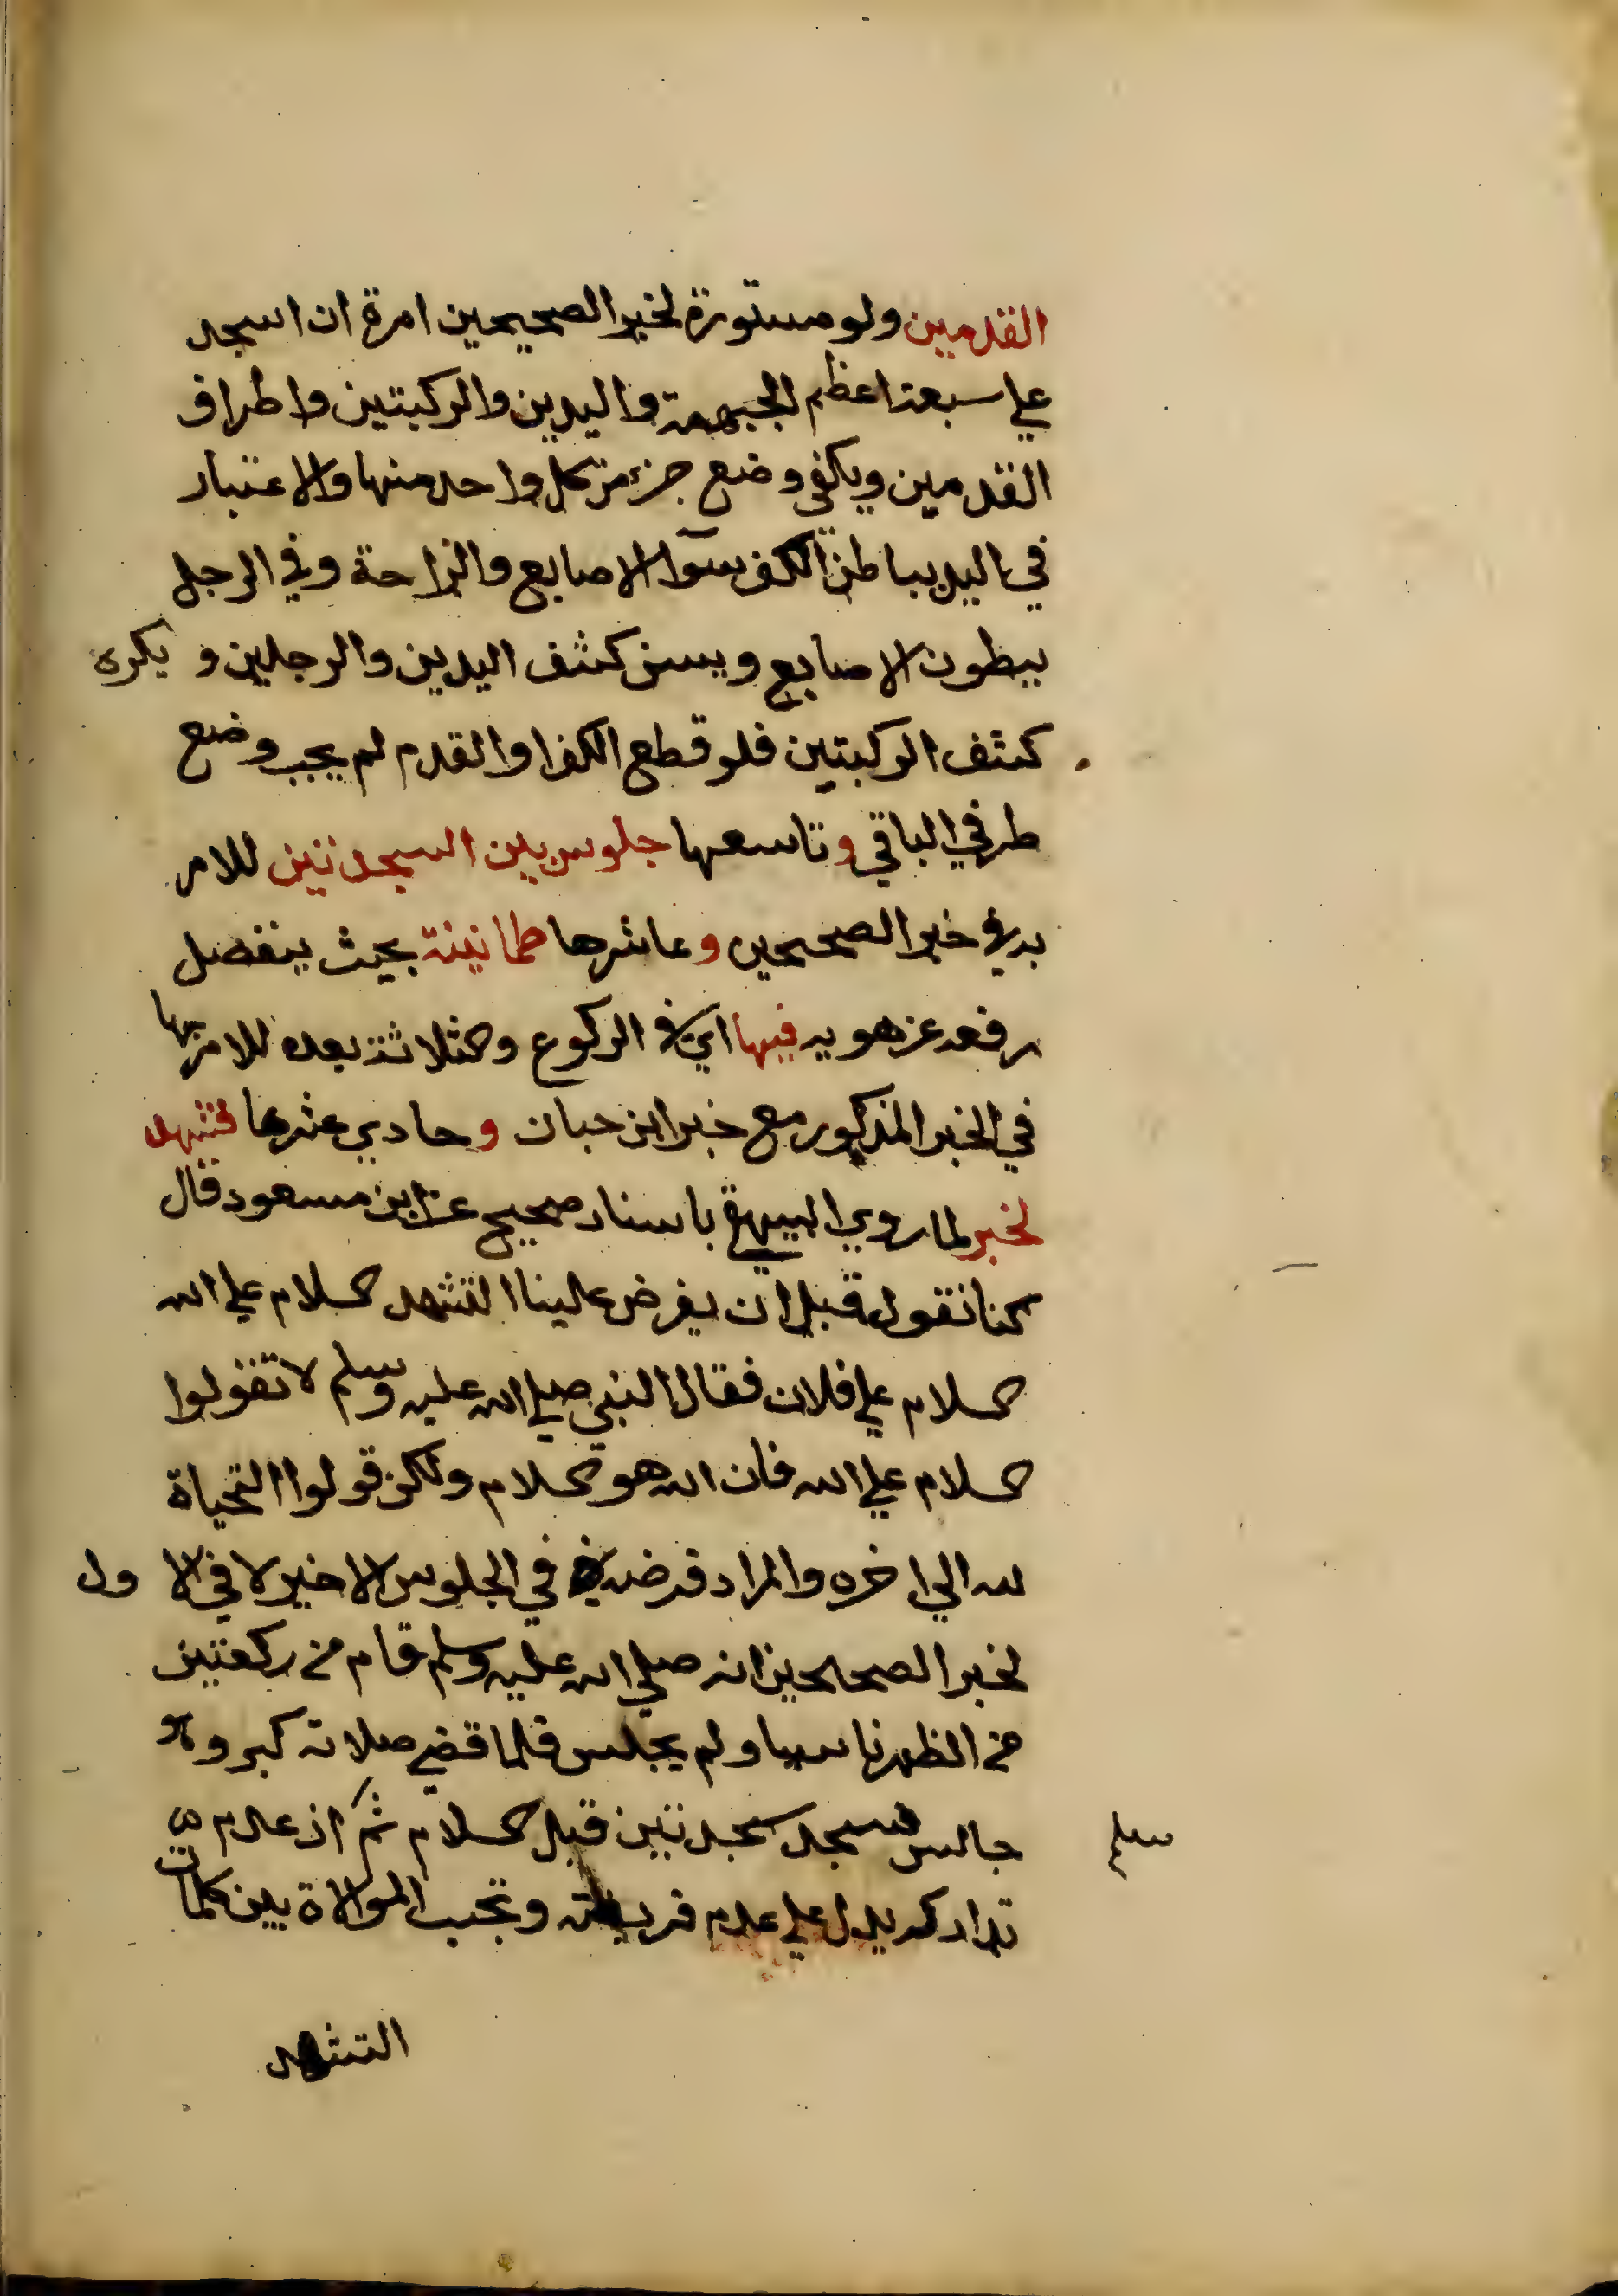 القدمين ولو مستورة لخبر الصحيحين امرة ان اسجد
علي سبعة اعظم الجبهة واليدين والركبتين واطراف
القدمين ويكفي وضع جزء من كل واحد منها والاعتبار
في اليد بباطن الكف سوآ الاصابع والراحة وفي الرجل
ببطون الاصابع ويسن كشف اليدين والرجلين و يكره
كشف الركبتين فلو قطع الكف او القدم لم يجب وضع
طرفي الباقي وتاسعها جلوس بين السجدتين للامر
به في خبر الصحيحين وعاشرها طمانينة بحيث ينفصل
رفعه عن هويه فيها اي في الركوع والثلاثة بعده للامر بها
في الخبر المذكور مع خبر ابن حبان وحادي عشرها تشهد
لخبر لما روي البيهقي باسناد صحيح عن ابن مسعود قال
كنا نقول قبل ان يفرض علينا التشهد السلام علي الله
السلام علي فلان فقال النبي صلي الله عليه وسلم لا تقولوا
السلام علي الله فان الله هو السلام ولكن قولوا التحياة
لله الي اخره والمراد فرضه في الجلوس الاخير لا في الا ول
لخبر الصحيحين انه صلي الله عليه وسلم قام من ركعتين
من الظهر ناسيا ولم يجلس فلما قضي صلاته كبر وهو
جالس فسجد سجدتين قبل السلام ثم اذ عدم
سلم
تداركه يدل علي عدم فريضته وتجب الموالاة بين كلمات
التشهد